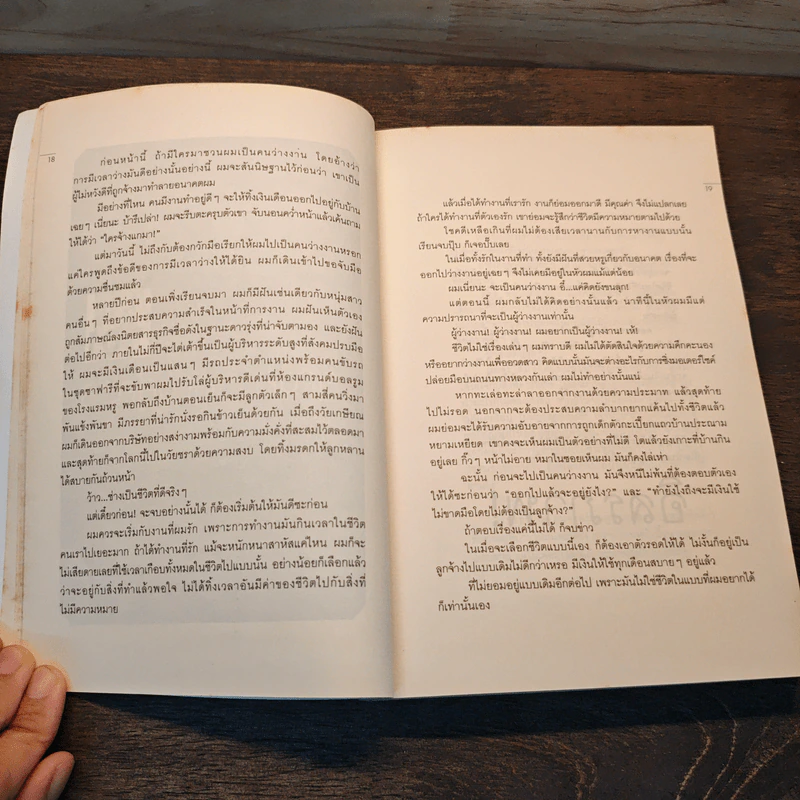 18
ก่อนหน้านี้ ถ้ามีใครมาชวนผมเป็นคนว่างงาน โดยอ้างว่า
การมีเวลาว่างมันดีอย่างนั้นอย่างนี้ ผมจะสันนิษฐานไว้ก่อนว่า เขาเป็น
ผู้ไม่หวังดีที่ถูกจ้างมาทำลายอนาคตผม
มีอย่างที่ไหน คนมีงานทำอยู่ดีๆ จะให้ทิ้งเงินเดือนออกไปอยู่กับบ้าน
เฉยๆ เนี่ยนะ บ้ารึเปล่า! ผมจะรีบตะครุบตัวเขา จับนอนคว่ำหน้าแล้วเค้นถาม
ให้ได้ว่า “ใครจ้างแกมา!”
แต่มาวันนี้ ไม่ถึงกับต้องกวักมือเรียกให้ผมไปเป็นคนว่างงานหรอก
แค่ใครพูดถึงข้อดีของการมีเวลาว่างให้ได้ยิน ผมก็เดินเข้าไปขอจับมือ
ด้วยความชื่นชมแล้ว
หลายปีก่อน ตอนเพิ่งเรียนจบมา ผมก็มีฝันเช่นเดียวกับหนุ่มสาว
คนอื่นๆ ที่อยากประสบความสำเร็จในหน้าที่การงาน ผมฝันเห็นตัวเอง
ถูกสัมภาษณ์ลงนิตยสารธุรกิจชื่อดังในฐานะดาวรุ่งที่น่าจับตามอง และยังฝัน
ต่อไปอีกว่า ภายในไม่กี่ปีจะไต่เต้าขึ้นเป็นผู้บริหารระดับสูงที่สังคมปรบมือ
ให้ ผมจะมีเงินเดือนเป็นแสนๆ มีรถประจำตำแหน่งพร้อมคนขับรถ
ในชุดซาฟารีที่จะขับพาผมไปรับโล่ผู้บริหารดีเด่นที่ห้องแกรนด์บอลรูม
ของโรงแรมหรู พอกลับถึงบ้านตอนเย็นก็จะมีลูกตัวเล็กๆ สามสี่คนวิ่งมา
พันแข้งพันขา มีภรรยาที่น่ารักนั่งรอกินข้าวเย็นด้วยกัน เมื่อถึงวัยเกษียณ
ผมก็เดินออกจากบริษัทอย่างสง่างามพร้อมกับความมั่งคั่งที่สะสมไว้ตลอดมา
และสุดท้ายก็จากโลกนี้ไปในวัยชราด้วยความสงบ โดยทิ้งมรดกให้ลูกหลาน
ได้สบายกันถ้วนหน้า
ว้าว...ช่างเป็นชีวิตที่ดีจริงๆ
แต่เดี๋ยวก่อน! จะจบอย่างนั้นได้ ก็ต้องเริ่มต้นให้มันดีซะก่อน
ผมควรจะเริ่มกับงานที่ผมรัก เพราะการทำงานมันกินเวลาในชีวิต
คนเราไปเยอะมาก ถ้าได้ทำงานที่รัก แม้จะหนักหนาสาหัสแค่ไหน ผมก็จะ
ไม่เสียดายเลยที่ใช้เวลาเกือบทั้งหมดในชีวิตไปแบบนั้น อย่างน้อยก็เลือกแล้ว
ว่าจะอยู่กับสิ่งที่ทำแล้วพอใจ ไม่ได้ทิ้งเวลาอันมีค่าของชีวิตไปกับสิ่งที่
ไม่มีความหมาย
19
แล้วเมื่อได้ทำงานที่เรารัก งานก็ย่อมออกมาดี มีคุณค่า จึงไม่แปลกเลย
ถ้าใครได้ทำงานที่ตัวเองรัก เขาย่อมจะรู้สึกว่าชีวิตมีความหมายตามไปด้วย
โชคดีเหลือเกินที่ผมไม่ต้องเสียเวลานานกับการหางานแบบนั้น
เรียนจบปุ๊บ ก็เจอปั๊บเลย
ในเมื่อทั้งรักในงานที่ทำ ทั้งยังมีฝันที่สวยหรูเกี่ยวกับอนาคต เรื่องที่จะ
ออกไปว่างงานอยู่เฉยๆ จึงไม่เคยมีอยู่ในหัวผมแม้แต่น้อย
ผมเนี่ยนะ จะเป็นคนว่างงาน อี๋...แค่คิดยังขนลุก!
แต่ตอนนี้ ผมกลับไม่ได้คิดอย่างนั้นแล้ว นาทีนี้ในหัวผมมีแต่
ความปรารถนาที่จะเป็นผู้ว่างงานเท่านั้น
ผู้ว่างงาน! ผู้ว่างงาน! ผมอยากเป็นผู้ว่างงาน! เห้!
ชีวิตไม่ใช่เรื่องเล่นๆ ผมทราบดี ผมไม่ได้ตัดสินใจด้วยความคึกคะนอง
หรืออยากว่างงานเพื่ออวดสาว คิดแบบนั้นมันจะต่างอะไรกับการซิ่งมอเตอร์ไซค์
ปล่อยมือบนถนนทางหลวงกันเล่า ผมไม่ทำอย่างนั้นแน่
หากทะเล่อทะล่าลาออกจากงานด้วยความประมาท แล้วสุดท้าย
ไปไม่รอด นอกจากจะต้องประสบความลำบากยากแค้นไปทั้งชีวิตแล้ว
ผมย่อมจะได้รับความอับอายจากการถูกเด็กตัวกะเปี๊ยกแถวบ้านประณาม
หยามเหยียด เขาคงจะเห็นผมเป็นตัวอย่างที่ไม่ดี โตแล้วยังเกาะที่บ้านกิน
อยู่เลย กิ๊วๆ หน้าไม่อาย หมาในซอยเห็นผม มันก็คงไล่เห่า
ฉะนั้น ก่อนจะไปเป็นคนว่างงาน มันจึงหนีไม่พ้นที่ต้องตอบตัวเอง
ให้ได้ซะก่อนว่า “ออกไปแล้วจะอยู่ยังไง?” และ “ทำยังไงถึงจะมีเงินใช้
ไม่ขาดมือโดยไม่ต้องเป็นลูกจ้าง?”
ถ้าตอบเรื่องแค่นี้ไม่ได้ ก็จบข่าว
ในเมื่อจะเลือกชีวิตแบบนี้เอง ก็ต้องเอาตัวรอดให้ได้ ไม่งั้นก็อยู่เป็น
ลูกจ้างไปแบบเดิมไม่ดีกว่าเหรอ มีเงินให้ใช้ทุกเดือนสบายๆ อยู่แล้ว
ที่ไม่ยอมอยู่แบบเดิมอีกต่อไป เพราะมันไม่ใช่ชีวิตในแบบที่ผมอยากได้
ก็เท่านั้นเอง